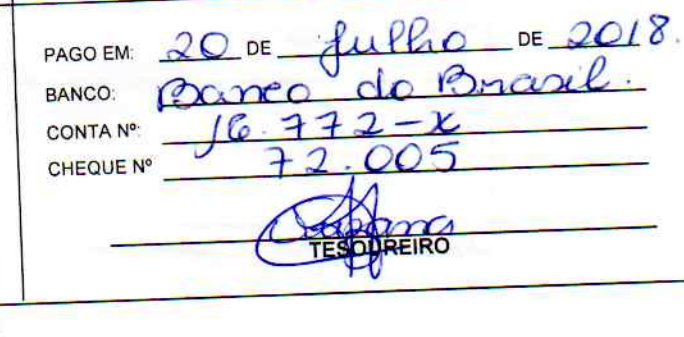 PAGO EM: 20 DE Julho DE 2018.
BANCO: Banco do Brasil.
CONTA Nº: 16.772-X
CHEQUE Nº 72.005
TESOUREIRO